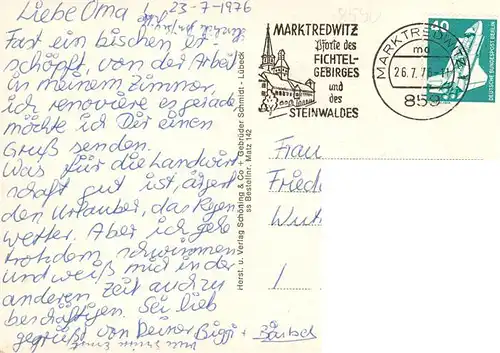 Liebe Oma! 23-7-1976
Fast ein bischen er-
schöpft von der Arbeit
in meinem Zimmer,
ich renoviere es gerade
möchte ich Dir einen
Gruß senden.
Was für die Landwirt-
schaft gut ist, ärgert
den Urlauber, das Regen-
wetter. Aber ich gehe
trotzdem schwimmen
und weiß mich in der
anderen Zeit auch zu
beschäftigen. Sei lieb
gegrüßt von Deiner Biggi + Bärbel
Herst. u. Verlag Schöning & Co + Gebrüder Schmidt · Lübeck
ss Bestellnr. Matz 142
MARKTREDWITZ
Pforte des
FICHTEL-
GEBIRGES
und
des
STEINWALDES
MARKTREDWITZ
mc
26.7.76
859
40
DEUTSCHE BUNDESPOST BERLIN
Frau
Fried
Wun